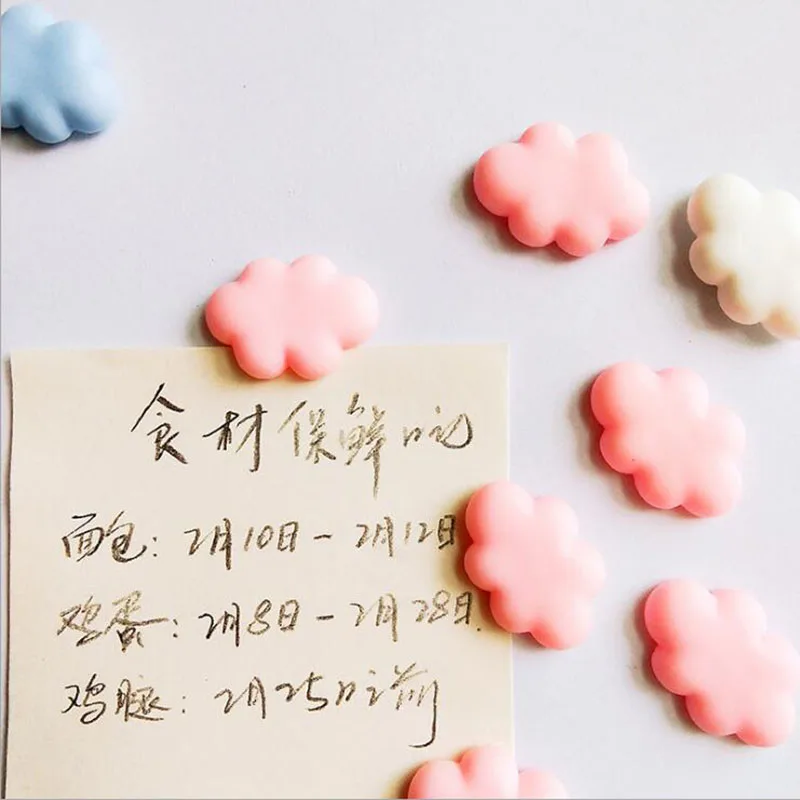 食材保鲜吃
面包：2月10日－2月12日
鸡蛋：2月8日－2月28日.
鸡腿：2月25日之前